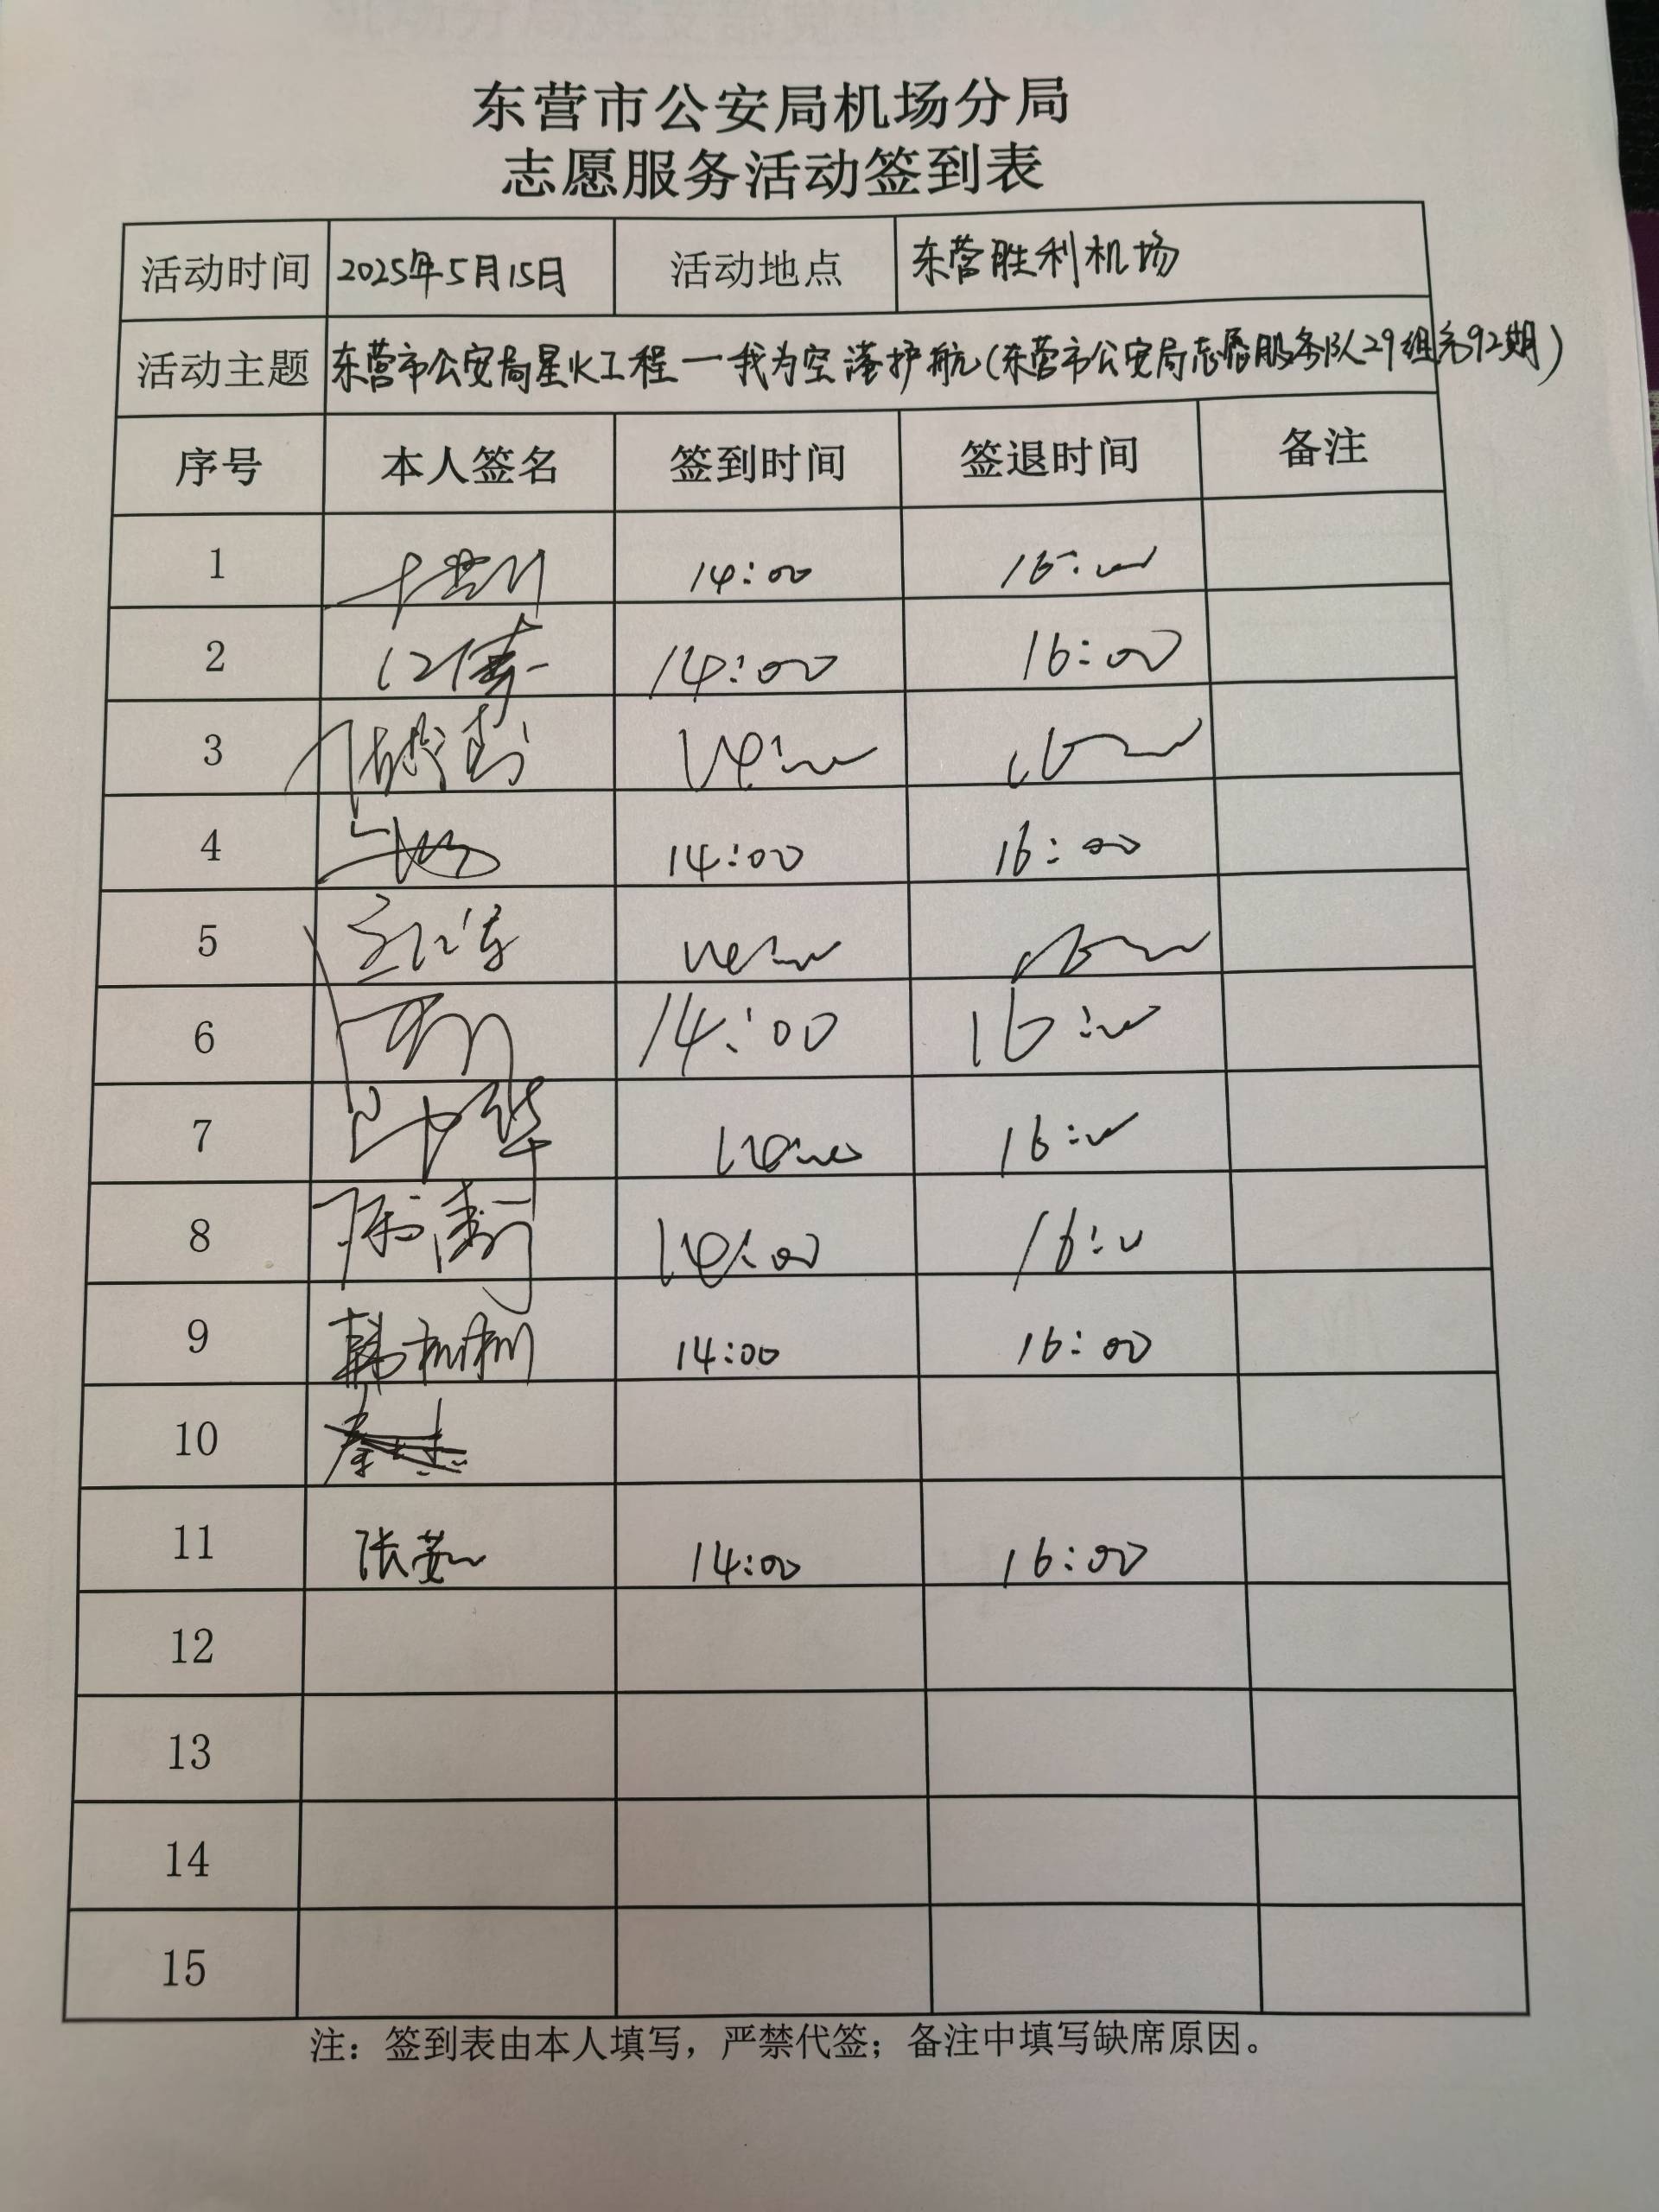 东营市公安局机场分局
志愿服务活动签到表
活动时间 2025年5月15日 活动地点 东营胜利机场
活动主题 东营市公安局星火工程一我为空港护航(东营市公安局志愿服务队29组第92期)
序号 本人签名 签到时间 签退时间 备注
1 14:00 16:00
2 14:00 16:00
3 14:00 16:00
4 14:00 16:00
5 14:00 16:00
6 14:00 16:00
7 14:00 16:00
8 14:00 16:00
9 韩树树 14:00 16:00
10
11 14:00 16:00
12
13
14
15
注：签到表由本人填写，严禁代签；备注中填写缺席原因。